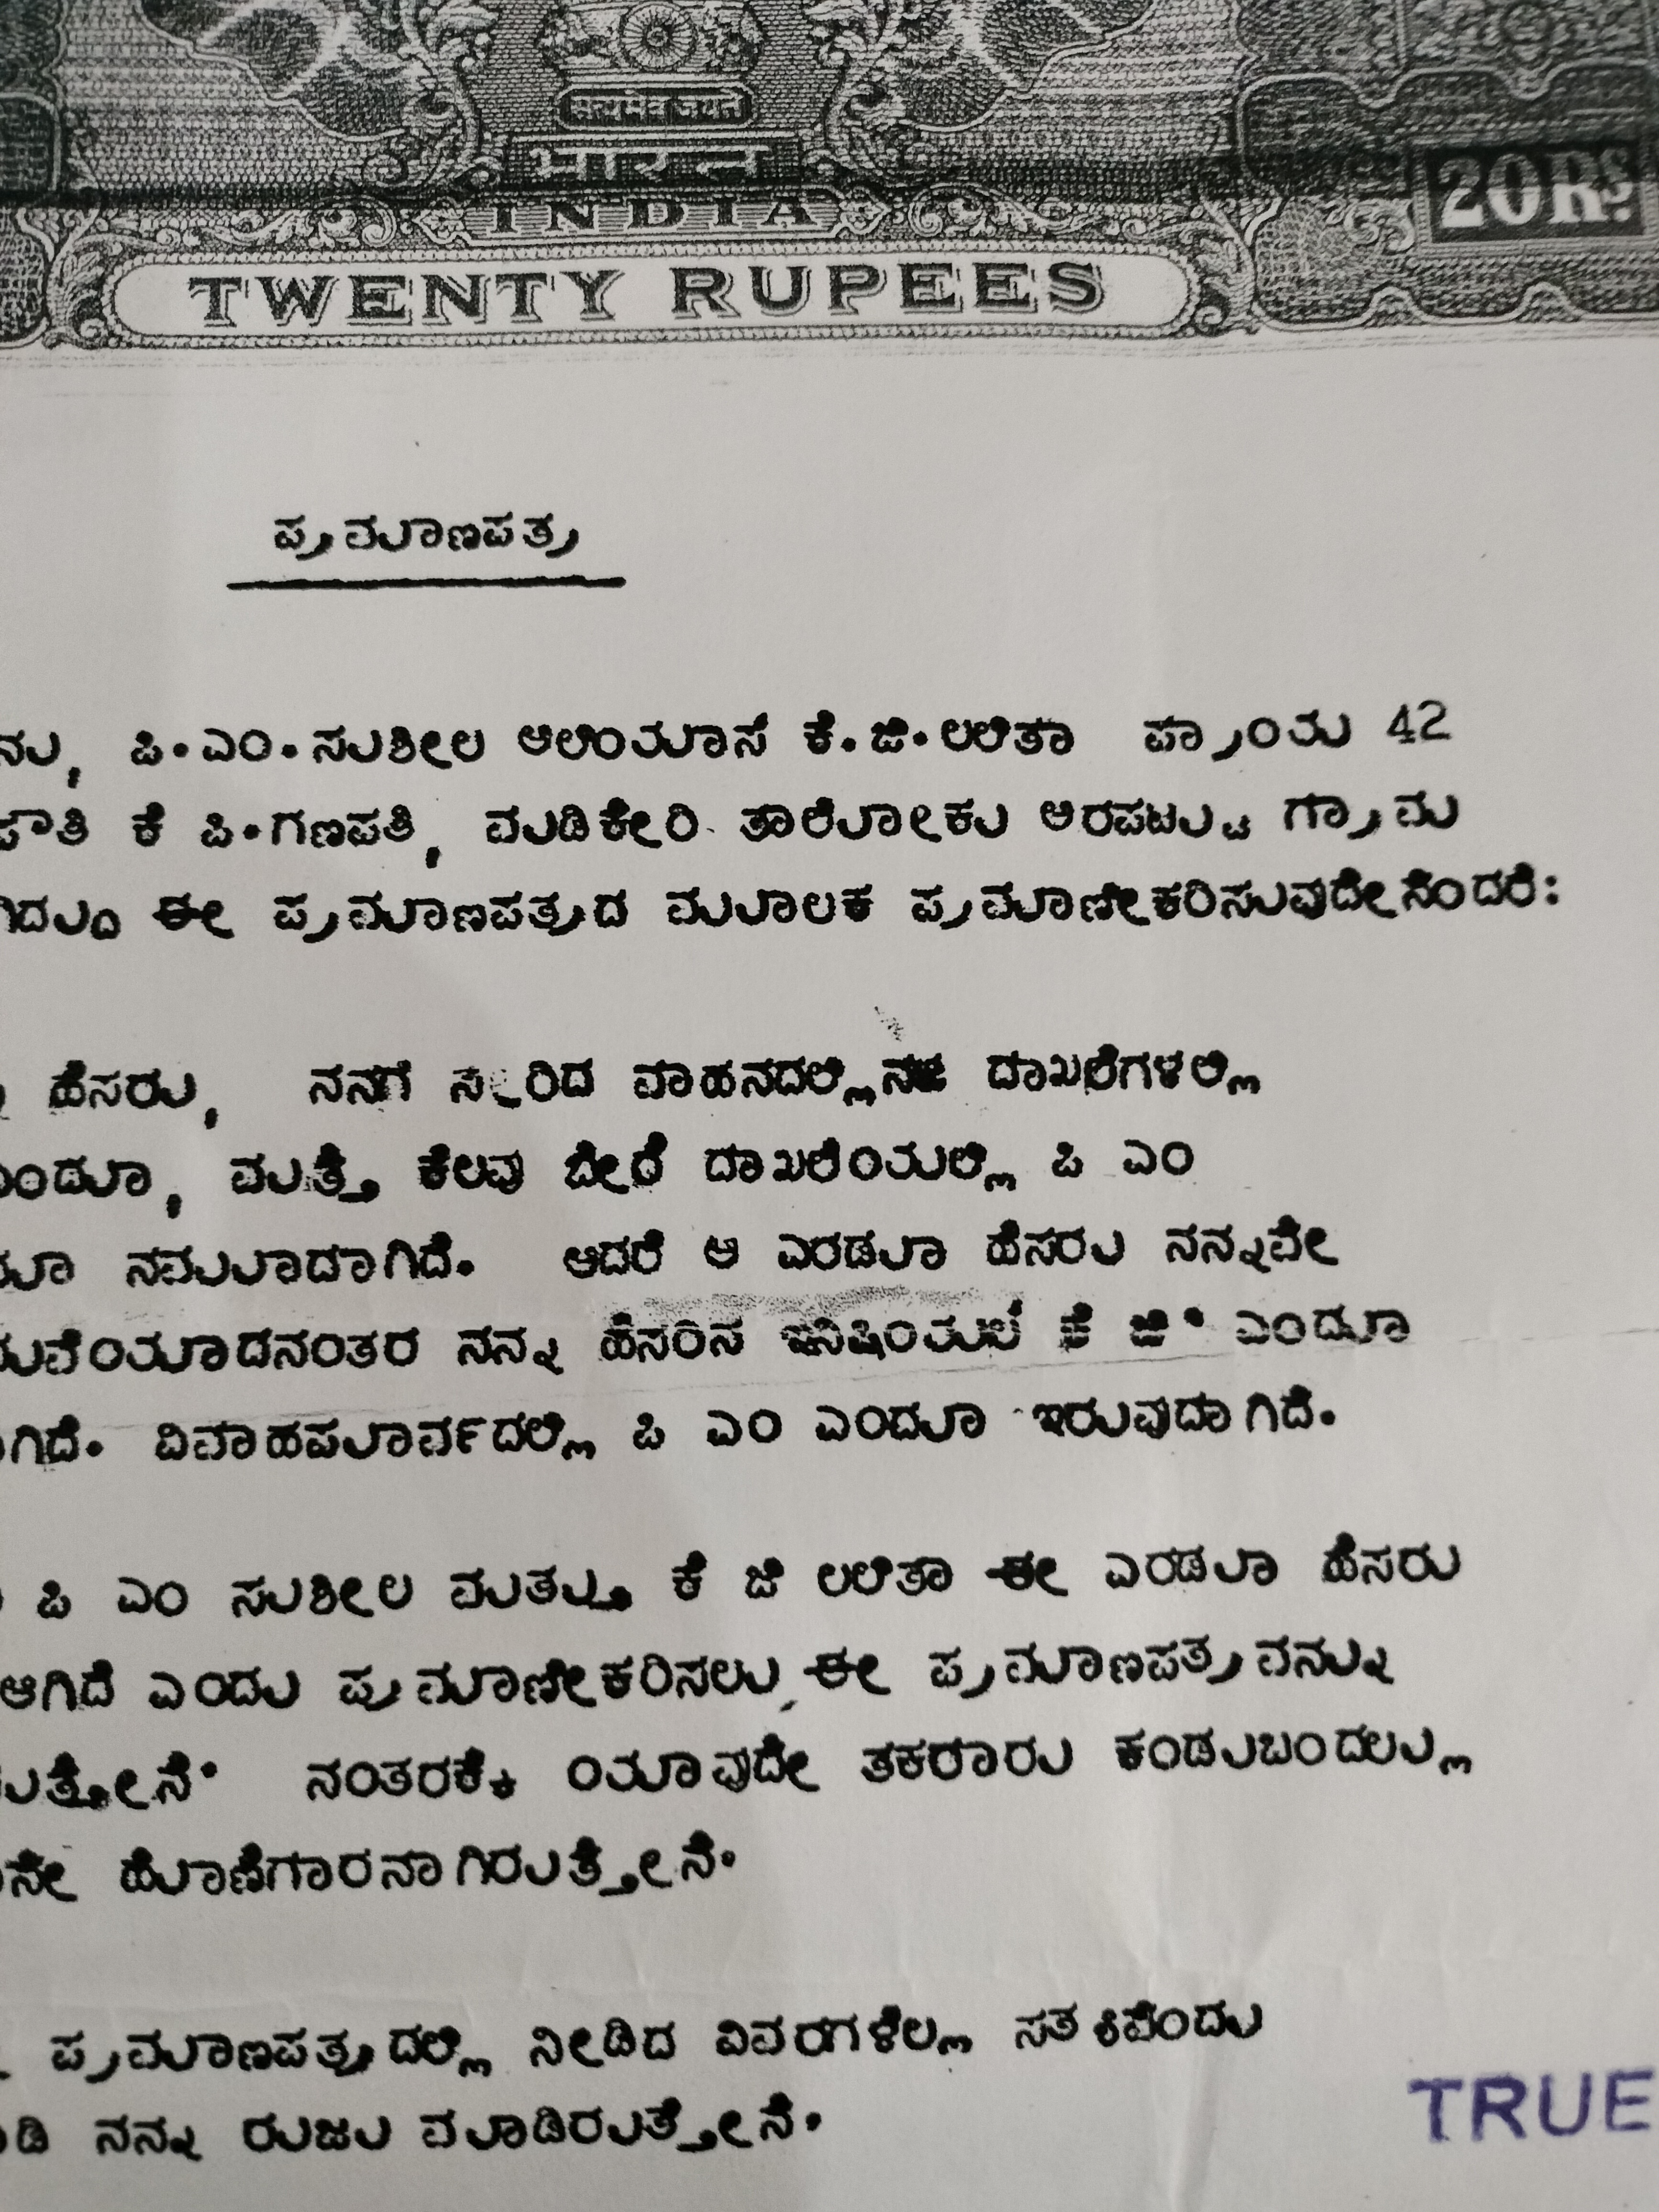 सत्यमेव जयते
भारत
INDIA
20Rs.
TWENTY RUPEES
ಪ್ರಮಾಣಪತ್ರ
ನು, ಪಿ.ಎಂ.ಸುಶೀಲ ಆಲಿಯಾಸ್ ಕೆ.ಜಿ.ಲಲಿತಾ ಪ್ರಾಯ 42
ಪೌತಿ ಕೆ ಪಿ.ಗಣಪತಿ, ಮಡಿಕೇರಿ ತಾಲೊೀಕು ಅರಪಟ್ಟು ಗ್ರಾಮ
ಗಿದ್ದು ಈ ಪ್ರಮಾಣಪತ್ರದ ಮೂಲಕ ಪ್ರಮಾಣೀಕರಿಸುವುದೇನೆಂದರೆ:
ಹೆಸರು, ನನಗೆ ಸೇರಿದ ವಾಹನದಲ್ಲಿನ ದಾಖಲೆಗಳಲ್ಲಿ
ಎಂದೂ, ಮತ್ತೆ ಕೆಲವು ಬೇರೆ ದಾಖಲೆಯಲ್ಲಿ ಪಿ ಎಂ
ನಮೂದಾಗಿದೆ. ಆದರೆ ಆ ಎರಡೂ ಹೆಸರು ನನ್ನವೇ
ದುವೆಯಾದನಂತರ ನನ್ನ ಹೆಸರಿನ ಇನಿಷಿಯಲ್ ಕೆ ಜಿ. ಎಂದೂ
ಾಗಿದೆ. ವಿವಾಹಪೂರ್ವದಲ್ಲಿ ಪಿ ಎಂ ಎಂದೂ ಇರುವುದಾಗಿದೆ.
ಪಿ ಎಂ ಸುಶೀಲ ಮತ್ತು ಕೆ ಜಿ ಲಲಿತಾ ಈ ಎರಡೂ ಹೆಸರು
ಆಗಿದೆ ಎಂದು ಪ್ರಮಾಣೀಕರಿಸಲು ಈ ಪ್ರಮಾಣಪತ್ರವನ್ನು
ುತ್ತೇನೆ. ನಂತರಕ್ಕೆ ಯಾವುದೇ ತಕರಾರು ಕಂಡುಬಂದಲ್ಲಿ
ನೇ ಹೊಣೆಗಾರನಾಗಿರುತ್ತೇನೆ.
ಪ್ರಮಾಣಪತ್ರದಲ್ಲಿ ನೀಡಿದ ವಿವರಗಳೆಲ್ಲ ಸತ್ಯವೆಂದು
ಾಡಿ ನನ್ನ ರುಜು ಮಾಡಿರುತ್ತೇನೆ.
TRUE